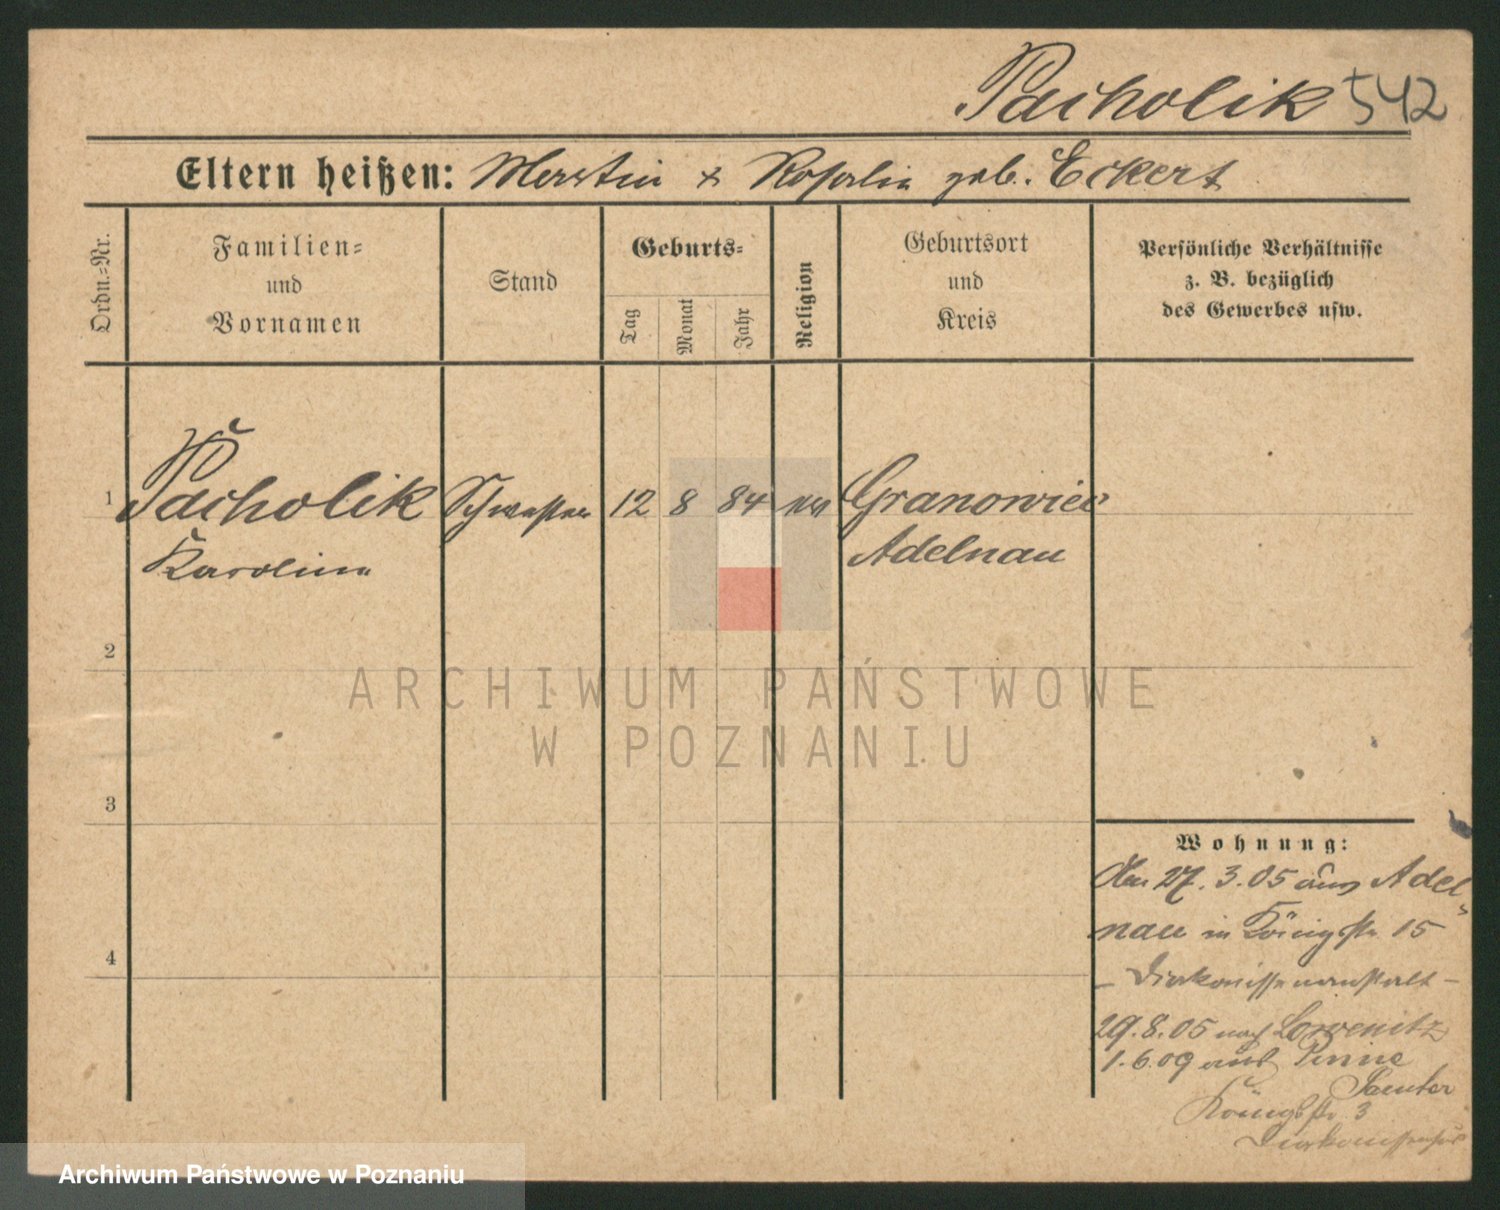 Pacholik 542
Eltern heißen: Martin & Rosalie geb. Eckert
Ordn.-Nr.
Familien-
und
Vornamen
Stand
Geburts-
Tag
Monat
Jahr
Religion
Geburtsort
und
Kreis
Persönliche Verhältnisse
z. B. bezüglich
des Gewerbes usw.
1
Pacholik
Karolina
Schwester
12 8 84
Granowiec
Adelnau
2
3
4
Wohnung:
27.3.05 aus Adel-
nau in Königstr. 15
- Diakonissenanstalt -
29.8.05 nach
1.6.09 aus Pinne
Samter
Königstr. 3
ARCHIWUM PAŃSTWOWE
W POZNANIU
Archiwum Państwowe w Poznaniu